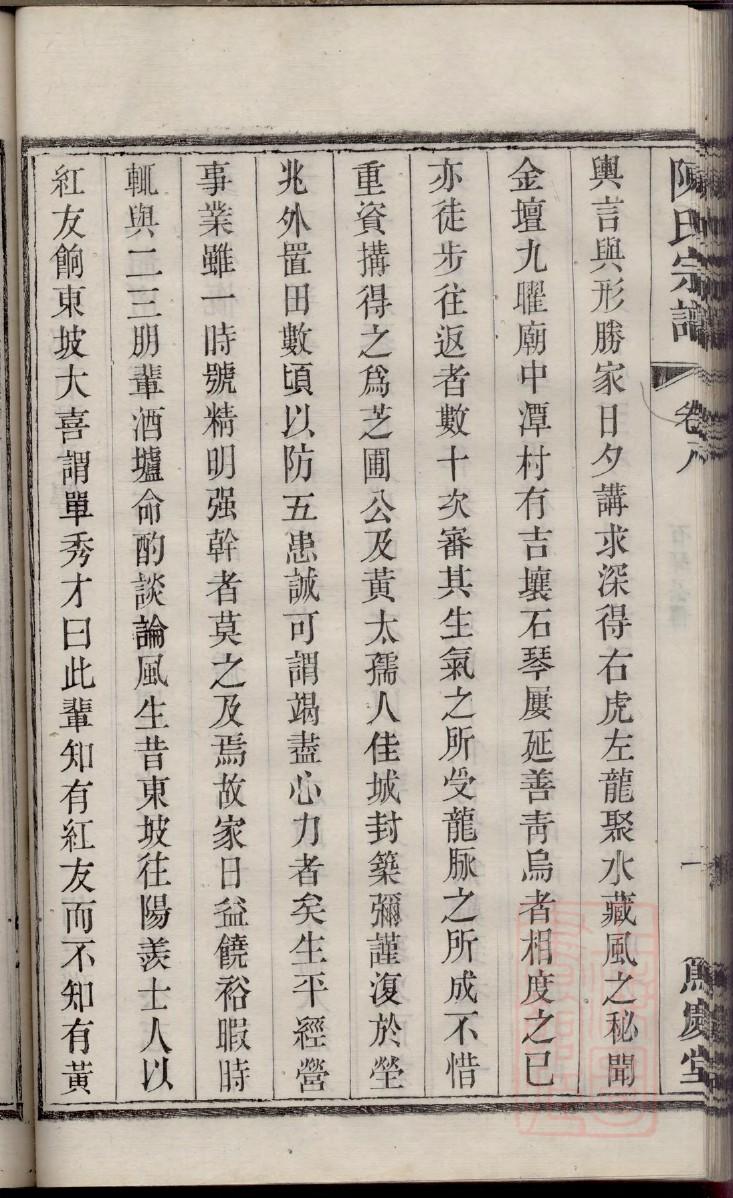 陳氏宗譜 卷八 一 篤慶堂
輿言與形勝家日夕講求深得右虎左龍聚水藏風之秘聞
金壇九曜廟中潭村有吉壤石琴屢延善靑烏者相度之已
亦徒步往返者數十次審其生氣之所受龍脉之所成不惜
重資搆得之爲芝圃公及黃太孺人佳城封築彌謹復於塋
兆外置田數頃以防五患誠可謂竭盡心力者矣生平經營
事業雖一時號精明强幹者莫之及焉故家日益饒裕暇時
輒與二三朋輩酒壚命酌談論風生昔東坡往陽羨士人以
紅友餉東坡大喜謂單秀才曰此輩知有紅友而不知有黃